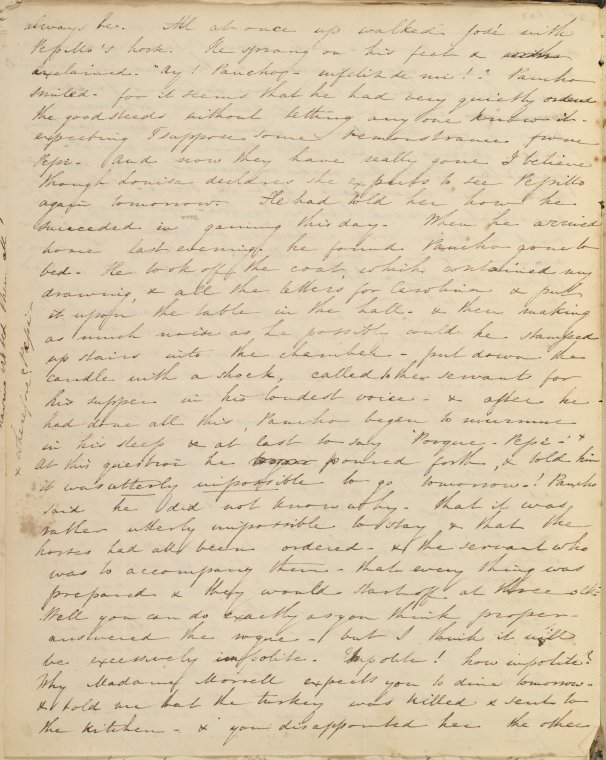 always be. All at once up walked José with
Pepillo's horse. He sprang on his feet &
exclaimed - "Ay! Panchog - infelit de mi!!" Pancho
smiled - for it seems that he had very quietly ordered
the good steeds without letting any one know it -
expecting I suppose some remonstrance from
Pepe - And now they have really gone I believe
though Louisa declares she expects to see Pepillo
again tomorrow. He had told her how he
succeeded in gaining this day. When he arrived
home last evening he found Pancho gone to
bed. He took off the coat, which contained my
drawing, & all the letters for Carolina & put
it upon the table in the hall - & then making
as much noise as he possibly could he stamped
up stairs into the chamber - put down the
candle with a shock, called to the servant for
his supper in his loudest voice - & after he
had done all this, Pancho began to murmur
in his sleep & at last to say "Porque - Pepe -" &
At this question he poured forth, & told him
it was utterly impossible to go tomorrow -! Pancho
said he did not know why - that it was
rather utterly impossible to stay & that the
horses had all been ordered - & the servant who
was to accompany them - that every thing was
prepared & they would start off at three oclk
Well you can do exactly as you think proper -
answered the rogue - but I think it will
be excessively impolite - Impolite! how impolite?
Why Madame Morrell expects you to dine tomorrow -
& told me that the turkey was killed & sent to
the kitchen - & you disappointed her the other